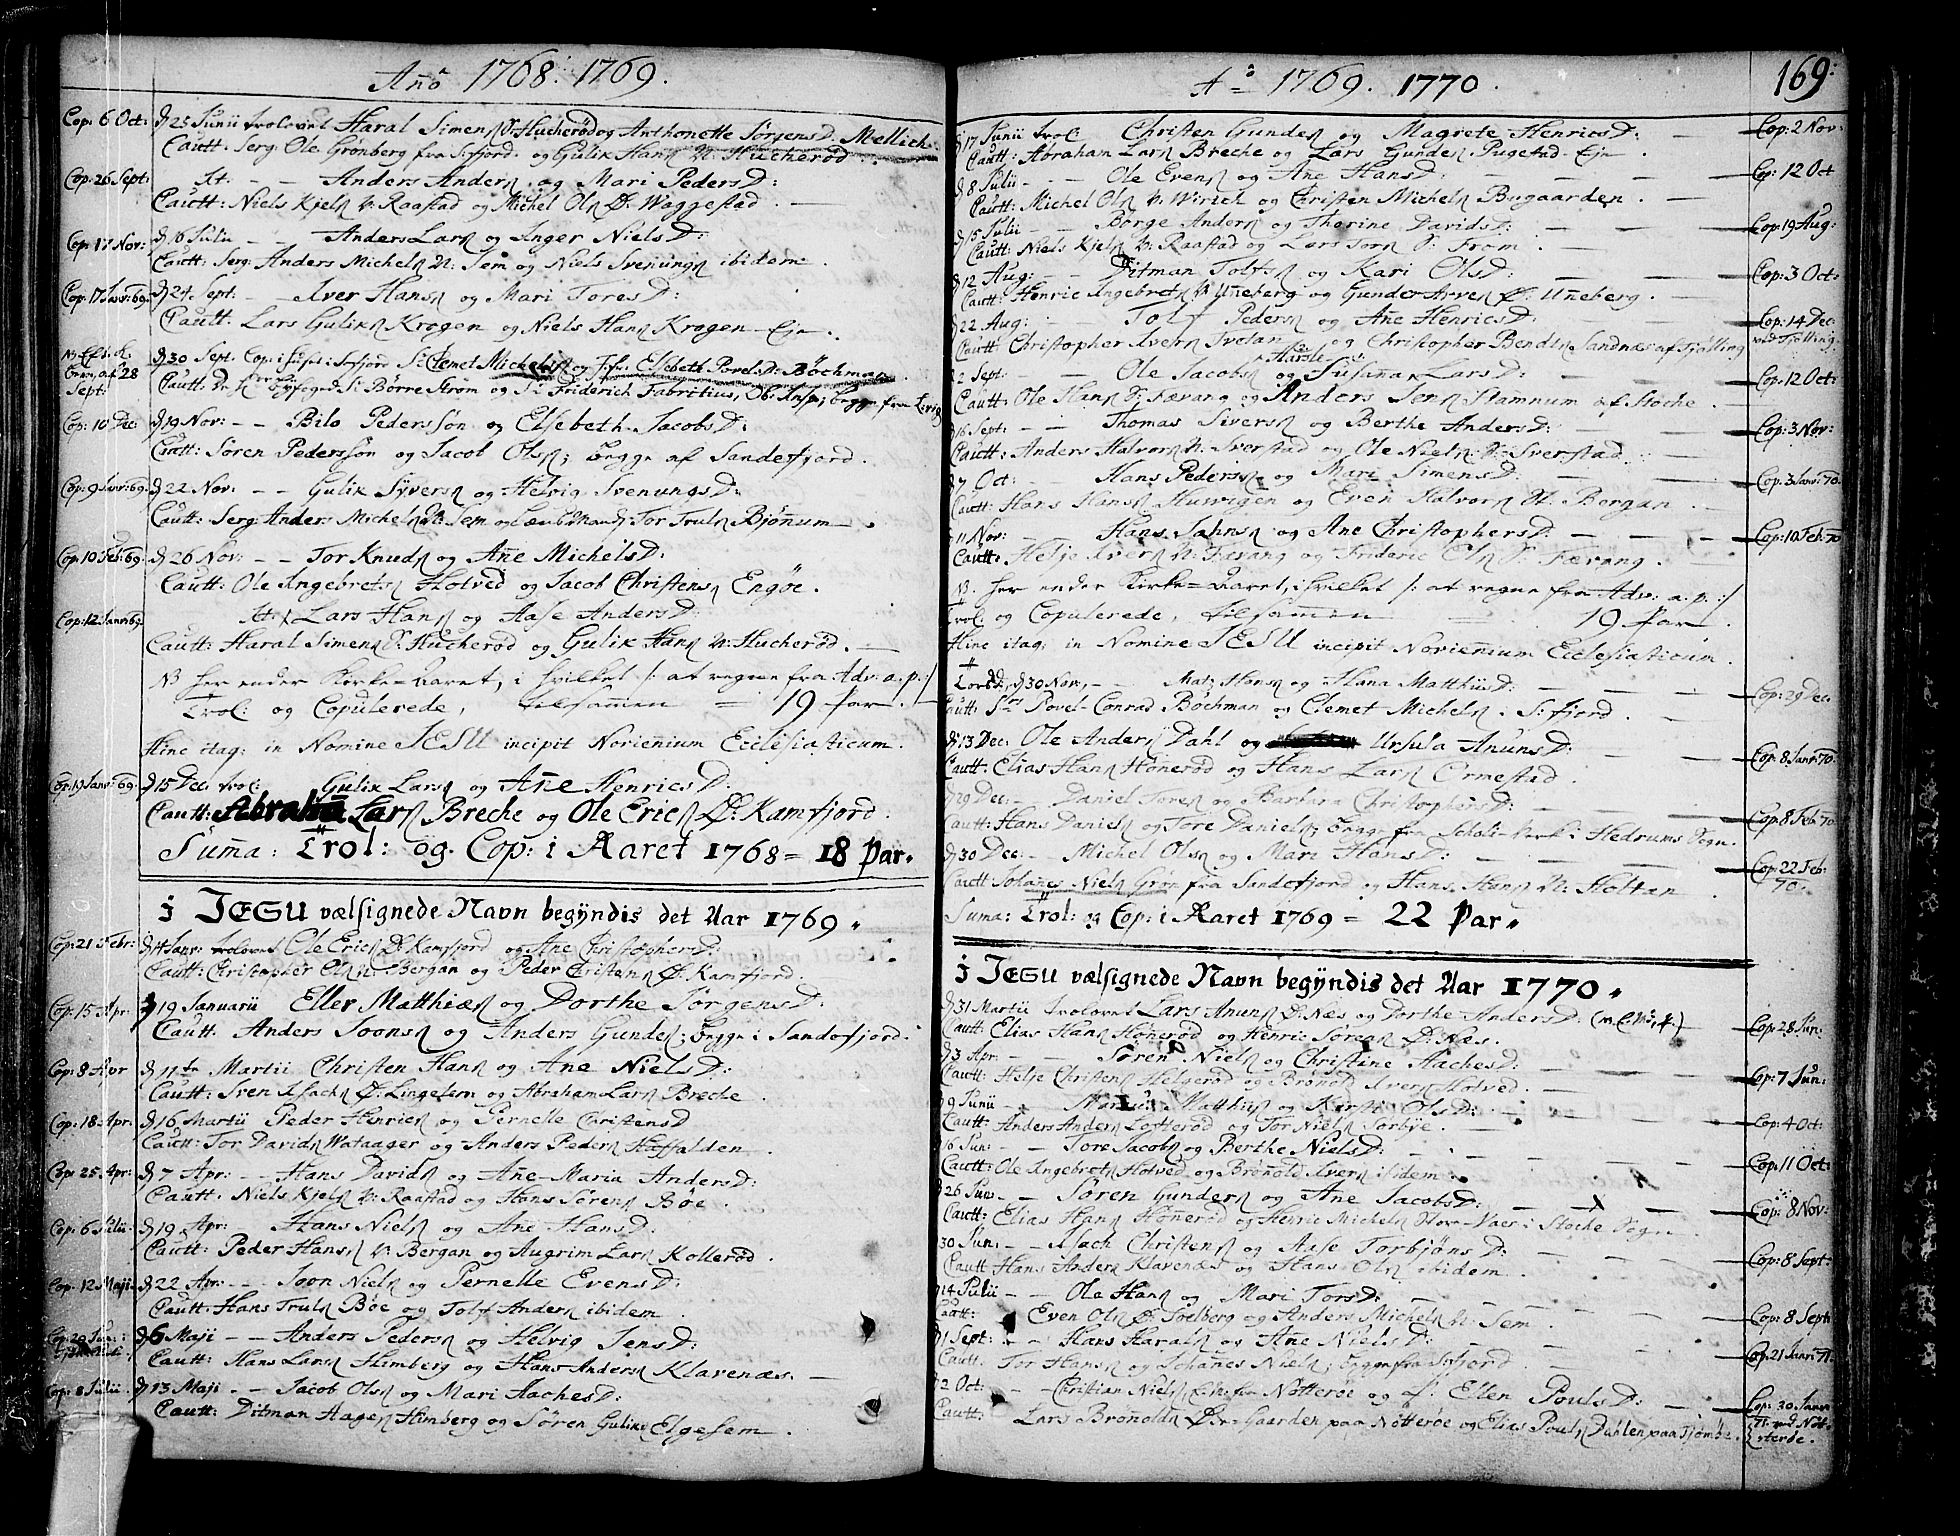 Año 1768. 1769.
Cop: 6 Oct: d 25 Junii trolovet Haral Simens S: Hucherød og Anthonette Jørgens D. Mellich
Cautt: Serg: Ole Grønberg fra S:fjord. og Gulik Hans N: Hucherød
Cop: 26 Sept: It: - - Anders Anders og Mari Peders D:
Cautt: Niels Kjels N: Raastad og Michel Ols Ø: Waggestad.
Cop: 17 Nov: d 16 Julii - - Anders Lars og Inger Niels D:
Cautt: Serg: Anders Michels N: Sem og Niels Svenungs ibidem.
Cop: 17 Janr: 69. d 24 Sept: - Iver Hans og Mari Tores D:
Cautt. Lars Guliks Krogen og Niels Hans Krogen-Eje.
28 Sept: d 30 Sept. Cop: i Huset i S:fjord Sr: Clemet Michels og Jfr: Elsebeth Povels D: Bøchman
Cautt: Byfoged Sr: Børre Strøm og Sr Friderich Fabritius, Ob: Insp; begge fra Lervig
Cop: 10 Dec: d 19 Nov: - - Bilo Pedersøn og Elsebeth Jacobs D:
Cautt: Søren Pedersøn og Jacob Ols; begge af Sandefjord.
Cop: 9 Janr: 69. d 22 Nov: - - Gulik Syvers og Helvig Svenungs D:
Cautt: Serg: Anders Michels N: Sem og Tor Truls Bjønum
Cop: 10 Feb: 69. d 26 Nov: - - Tor Knuds og Añe Michels D:
Cautt: Ole Ingebrets Hotved og Jacob Christens Engøe.
Cop: 12 Janr: 69. It: Lars Hans og Aase Anders D:
Cautt: Haral Simens S: Hucherød og Gulik Hans N: Hucherød.
NB her ender Kirke-Aaret, i hvilket /: at regne fra Adv: a: p: /
Trol: og Copulerede, tilsammen = 19 Par.
Hinc itaq; in Nomine JESU incipit Novieñium Ecclesiasticum.
Cop: 19 Janr: 69. d 15 Dec: trol: Gulik Lars og Añe Henrics D:
Cautt: Abraham Lars Breche og Ole Erics Ø: Kamfjord.
Suma: Trol: og Cop: i Aaret 1768 = 18 Par.
i JESU vælsignede Navn begyndis det Aar 1769
Cop: 21 Febr: d 4 Janr: trolovet Ole Erics Ø: Kamfjord og Ane Christophers D:
Cautt: Christopher Ols N: Bergan og Peder Christens Ø: Kamfjord.
Cop: 15 Apr: d 19 Januarii Eller Matthias og Dorthe Jørgens D:
Cautt. Anders Joons og Anders Gunders; begge i Sandefjord.
Cop: 8 Apr d 11te Martii Christen Hans og Ane Niels D:
Cautt: Sven Isachs Ø: Lingelem og Abraham Lars Breche.
Cop: 18 Apr: d 16 Martii Peder Henrics og Pernelle Christens D
Cautt: Tor Davids Wataager og Anders Peders Haffalden.
Cop: 25 Apr: d 7 Apr: - Hans Davids og Añe-Maria Anders D:
Cautt: Niels Kjels N: Raastad og Hans Sørens Bøe.
Cop: 6 Julii: d 19 Apr: - Hans Niels og Ane Hans D:
Cautt: Peder Hans N: Bergan og Augrim Lars Kollerød.
Cop: 12 Maji d 22 Apr: - - Joon Niels og Pernelle Evens D:
Cautt: Hans Truls Bøe og Tolf Anders ibidem
Cop: 20 Jun: d 6 Maji - - Anders Peders og Helvig Jens D:
Cautt: Hans Lars Himberg og Hans Anders Klavenæs.
Cop: 8 Julii. d 13 Maji - - Jacob Ols og Mari Aaches D:
Cautt: Ditman Aages Himberg og Søren Guliks Elgesem.
Ao 1769. 1770. 169:
d 17 Junii trol: Christen Gunders og Magrete Henrics D: Cop: 2 Nov:
Cautt: Abraham Lars Breche og Lars Gunders Pugestad-Eje
d 8 Julii - - Ole Evens og Ane Hans D: Cop: 12 Oct
Cautt: Michel Ols N: Wirich og Christen Michels Bugaarden.
d 15 Julii - Børge Anders og Thorine Davids D: Cop: 19 Aug:
Cautt: Niels Kjels N: Raastad og Lars Tors S: Frøm.
d 12 Aug: - - Ditman Tolfs og Kari Ols D: Cop: 3 Oct:
Cautt: Henric Ingebrets N: Uñeberg og Gunder Arves Ø: Uñeberg.
d 22 Aug: - Tolf Peders og Añe Henrics D: Cop: 14 Dec: ved Tjølling
Cautt: Christopher Ivers og Christopher Bendts Sandnæs af Tjølling
d 2 Sept: - Ole Jacobs og Susaña Lars D: Cop: 12 Oct:
Cautt: Ole Hans S: Fævang og Anders Jens Stamnum af Stoche.
d 16 Sept: - - Thomas Sivers og Berthe Anders D: Cop: 3 Nov:
Cautt: Anders Halvors N: Sverstad og Ole Niels N: Sverstad.
d 7 Oct: - Hans Peders og Mari Simens D: Cop: 3 Janr: 70.
Cautt: Hans Hans Huuvigen og Even Halvors N. Bergan
d 11 Nov: - Hans Jahns og Ane Christophers D: Cop: 10 Feb: 70
Cautt: Helje Ivers N: Fævang og Frideric Ols S: Fævang.
NB. her ender Kirke-Aaret, i hvilket /: at regne fra Adv: a: p: /
Trol: og Copulerede, tilsammen = 19 Par.
Hinc itaq; in Nomine JESU incipit Novieñium Ecclesiasticum.
Trol: d, 30 Nov: - Mats Hans og Hana Matthiis D: Cop: 29 Dec:
Cautt: Sr Povel-Conrad Bøchman og Clemet Michels i S:fjord.
d 13 Dec: Ole Anders Dahl og Ursula Anuns D: Cop: 8 Janr: 70.
Cautt: Elias Hans Hønerød og Hans Lars Ormestad.
d 29 Dec: - Daniel Tores og Barbara Christophers D: Cop: 8 Feb: 70
Cautt: Hans Daniels og Tore Daniels; begge fra i Hedrums Sogn.
d 30 Dec: - Michel Ols og Mari Hans D: Cop: 22 Feb: 70.
Cautt: Johañes Niels Grøn fra Sandefjord og Hans Hans N: Holtan
Suma: Trol: og Cop: i Aaret 1769 = 22 Par.
i JESU vælsignede Navn begyndis det Aar 1770.
d 31 Martii trolovet Lars Anuns Ø: Næs og Dorthe Anders D: Cop: 28 Jun:
Cautt: Elias Hans Hønerød og Henric Sørens Ø: Næs.
d 3 Apr: - - Søren Niels og Christine Aaches D: Cop: 7 Jun:
Cautt: Helje Christens Helgerød og Brønold Ivers Hotved.
d 9 Junii - Marcus Matthiis og Kirsti Ols D: Cop: 4 Oct:
Cautt: Anders Anders Lofterød og Tor Niels Sørbye.
16 Jun: - Tore Jacobs og Berthe Niels D: Cop: 11 Oct:
Cautt: Ole Ingebrets Hotved og Brønold Ivers ibidem.
d 26 Jun: - - Søren Gunders og Ane Jacobs D: Cop: 8 Nov:
Cautt: Elias Hans Hønerød og Henric Michels i Stoche Sogn
30 Jun: - Isach Christens og Aase Torbjøns D: Cop: 8 Sept:
Cautt: Hans Anders Klavenæs og Hans Ols ibidem.
d 14 Julii - Ole Hans og Mari Tors D: Cop: 8 Sept:
Cautt: Even Ols Ø: Soelberg og Anders Michels N: Sem.
d 1 Sept: - - Hans Harals og Ane Niels D: Cop: 21 Janr: 71.
Cautt: Tor Hans og Johañes Niels; begge fra S:fjord
d 2 Oct: - - Christian Niels Nøtterøe og Ellen Pouls D: Cop: 30 Janr 71. ved Nøtterøe.
Cautt: Lars Brønolds Gaarden paa Nøtterøe og Elias Pouls Dahlen paa Tjømøe.